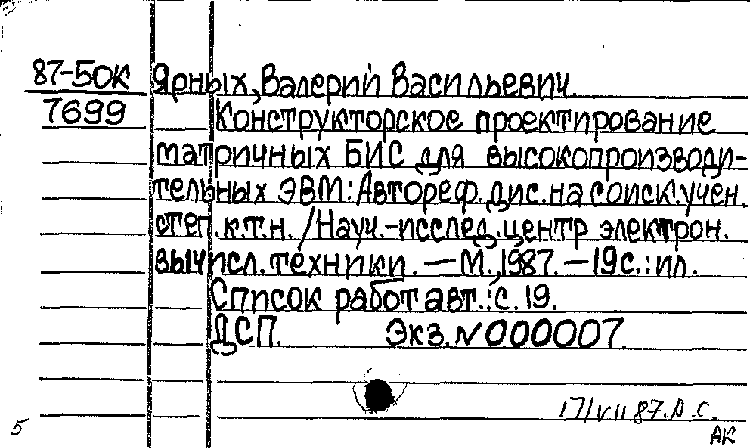 87-50К Ярных, Валерий Васильевич.
7699 Конструкторское проектирование
матричных БИС для высокопроизводи-
тельных ЭВМ: Автореф. дис. на соиск. учен.
степ. к.т.н. / Науч.-исслед. центр электрон.
вычисл. техники. — М., 1987. — 19 с.: ил.
Список работ авт.: с. 19.
ДСП. Экз. N 000007.
17/VII 87. Д. С.
5 АК